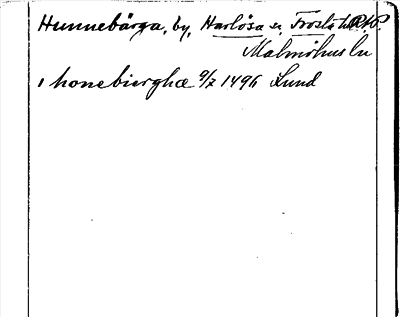 Hunnebärga, by, Harlösa sn, Frosta hd
Malmöhus län
i honebierghæ 9/7 1496 Lund